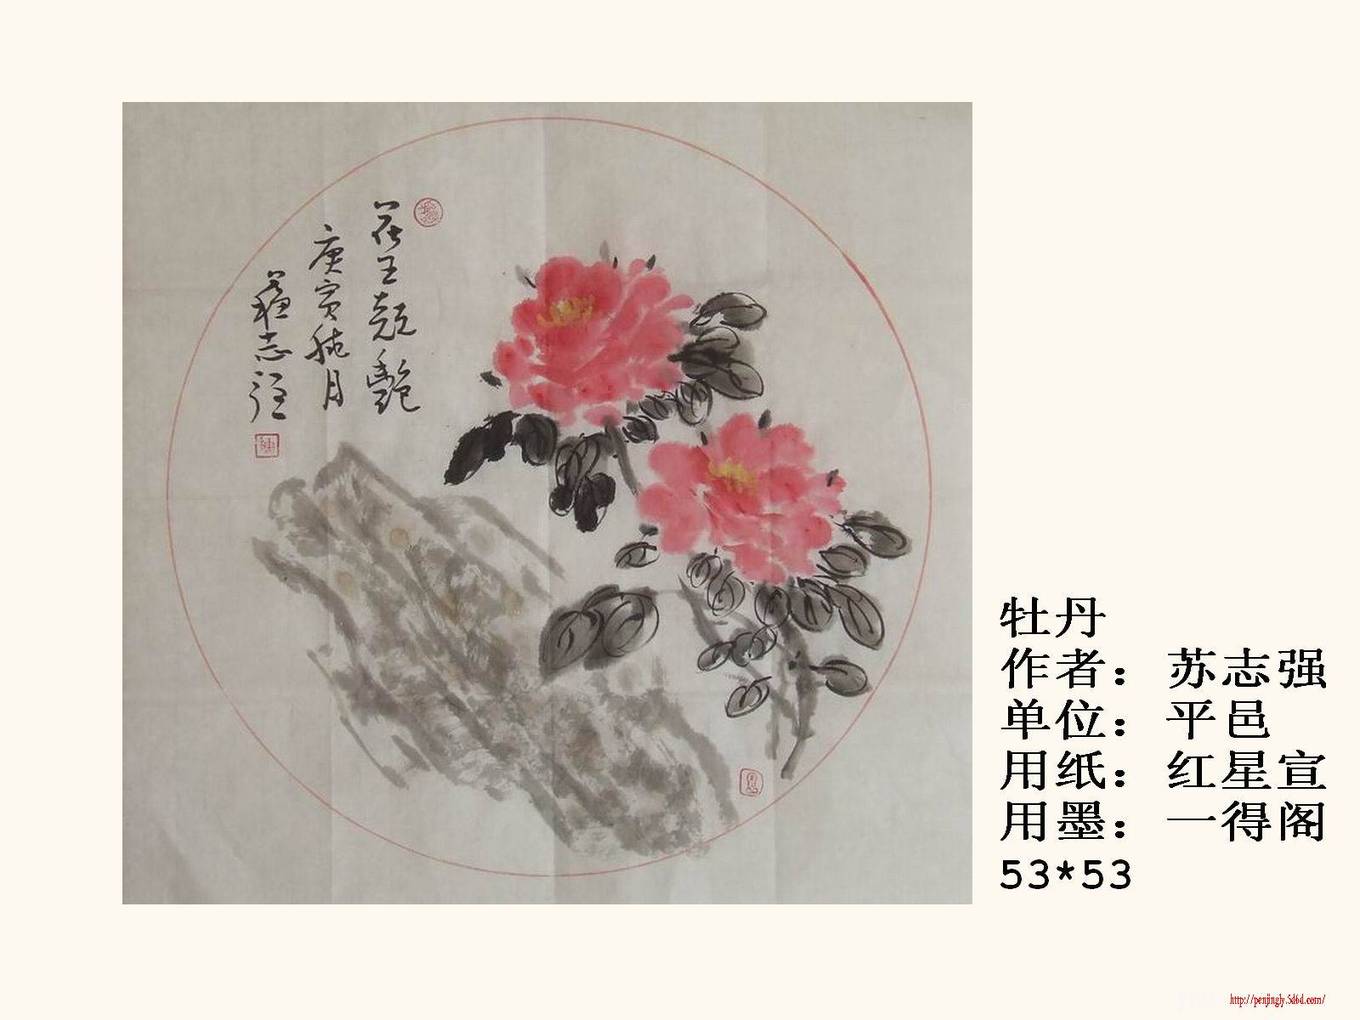 花王颜艳
庚寅秋月
蘇志强
牡丹
作者：苏志强
单位：平邑
用纸：红星宣
用墨：一得阁
53*53
http://penjingly.5d6d.com/